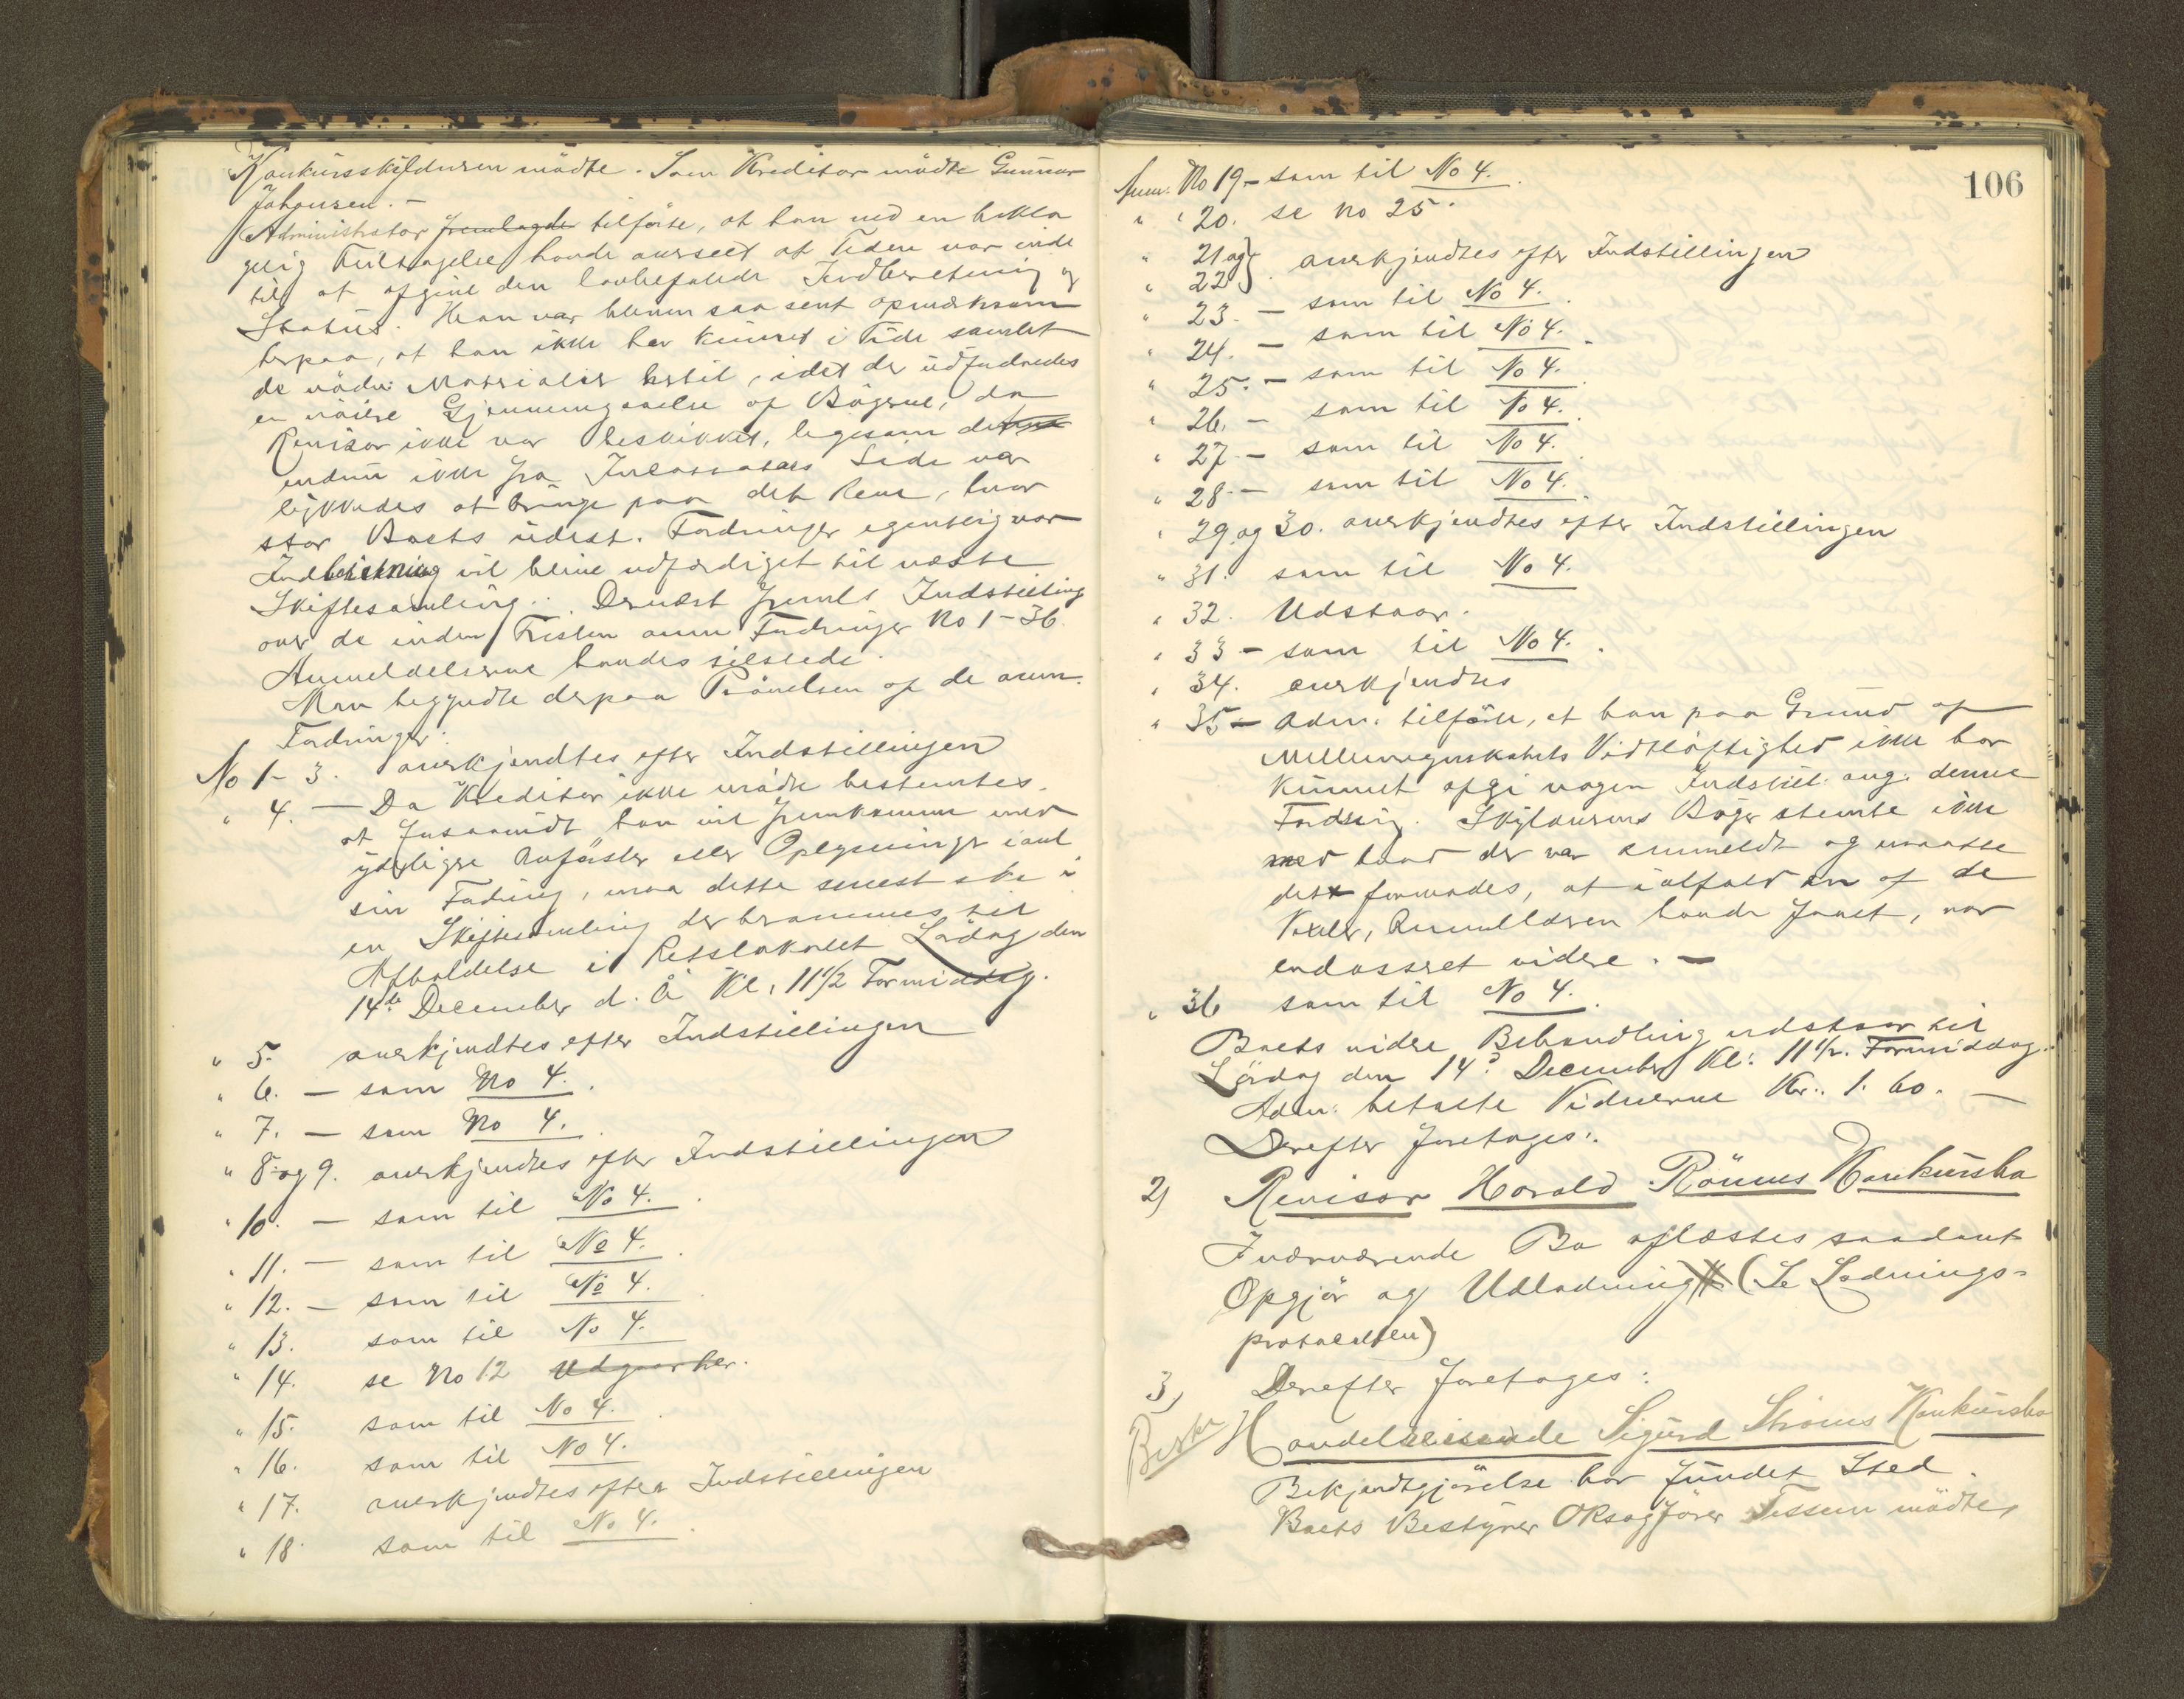 Konkursskyldneren mødte. Som Kreditor mødte Gunnar
Johansen. —
Administrator fremlagde tilførte, at han ved en bekla
gelig Feiltagelse havde overseet at Tiden var inde
til at afgive den lovbefalede Indberetning og
Status. Han var bleven saa sent opmærksom
herpaa, at han ikke har kunnet i Tide samlet
de nødv: Materialer hertil, idet der udfordredes
en nøiere Gjennemgaaelse af Bøgerne, da
Revisor ikke var beskikket, ligesom det
endnu ikke fra Inkassators Side var
lykkedes at bringe paa det Rene, hvor
stor Boets udest. Fordringer egentlig var
Indberetning vil blive udfærdiget til næste
Skiftesamling. Dernæst freml. Indstilling
over de inden Fristen anm Fordringer No 1-36.
Anmeldelserne havdes tilstede.
Man begyndte derpaa Prøvelsen af de anm.
Fordringer:
No 1-3. anerkjendtes efter Indstillingen
" 4. — Da Kreditor ikke mødte bestemtes.
at forsaavidt han vil fremkomme med
yderligere Anførsler eller Oplysninger i anl
sin Fordring, maa dette senest ske i
en Skiftesamling der berammes til
Afholdelse i Retslokalet Lördag den
14de December d. Å Kl. 11 1/2 Formiddag.
" 5. anerkjendtes efter Indstillingen
" 6. — som No 4.
" 7. — som No 4.
" 8 og 9. anerkjendtes efter Indstillingen
" 10. — som til No 4.
" 11. — som til No 4.
" 12. — som til No 4.
" 13. som til No 4.
" 14. se No 12 Udgaar her.
" 15. som til No 4.
" 16. som til No 4.
" 17. anerkjendtes efter Indstillingen
" 18 som til No 4.
106
Anm. No 19 — som til No 4.
" " 20. se No 25.
" 21 og
" 22 } anerkjendtes efter Indstillingen
" 23. — som til No 4.
" 24. — som til No 4.
" 25. — som til No 4.
" 26. — som til No 4.
" 27 — som til No 4.
" 28 — som til No 4.
" 29 og 30. anerkjendtes efter Indstillingen
" 31. som til No 4.
" 32. Udstaar.
" 33 — som til No 4.
" 34. anerkjendtes
" 35 — Adm. tilførte, at han paa Grund af
Mellemregnskabets Vidtløftighed ikke har
kunnet afgi nogen Indstill. ang. denne
Fordring. Skyldnerens Bøger stemte ikke
med hvad der var anmeldt og maatte
det formodes, at ialfald en af de
Vexler, Anmelderen havde faaet, var
endosseret videre. —
" 36 som til No 4.
Boets videre Behandling udstaar til
Lördag den 14de December Kl. 11 1/2. Formiddag.
Adm: betalte Vidnerne Kr. 1. 60. —
Derefter foretages:
2) Revisor Harald Rønnes Konkursbo
I nærværende Bo aflæstes saadant
Opgjør og Udlodning (Se Lodnings-
protokollen)
3) Derefter foretages:
Handelsreisende Sigurd Strøms Konkursbo
Bekjendtgjørelse har fundet Sted.
Boets Bestyrer ORsagfører Tessem mødte,